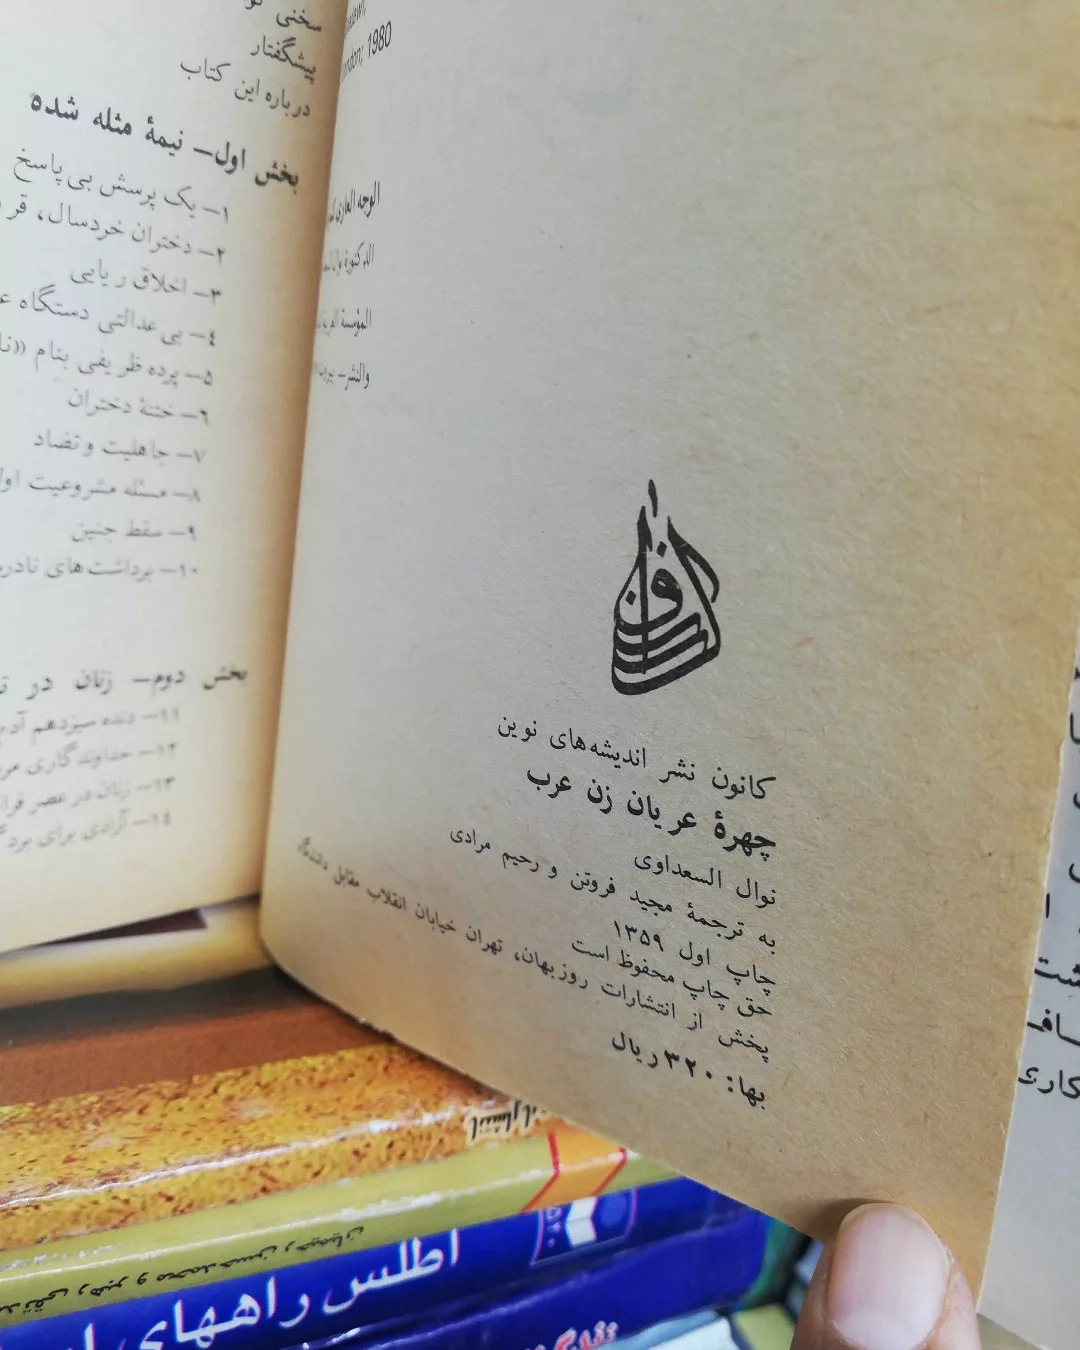 پیشگفتار
درباره این کتاب
بخش اول– نیمهٔ مثله شده
۱– یک پرسش بی‌پاسخ
۲– دختران خردسال،
۳– اخلاق ریایی
۴– بی‌عدالتی دستگاه
۵– پرده ظریفی بنام
۶– ختنهٔ دختران
۷– جاهلیت و تضاد
۸– مسئله مشروعیت
۹– سقط جنین
۱۰– برداشت‌های
بخش دوم– زنان در
۱۱– دنده سیزدهم آدم
۱۲– خداوندگاری
۱۳– زنان در عصر
۱۴– آزادی برای
1980
الوجه العاری
الدکتورة نوال
المؤسسة
والنشر– بیروت
کانون نشر اندیشه‌های نوین
چهرهٔ عریان زن عرب
نوال السعداوی
به ترجمهٔ مجید فروتن و رحیم مرادی
چاپ اول ۱۳۵۹
حق چاپ محفوظ است
پخش از انتشارات روزبهان، تهران خیابان انقلاب مقابل دانشگاه
بها: ۳۲۰ ریال
رهبر و محمدحسن رحیمیان
اطلس راههای